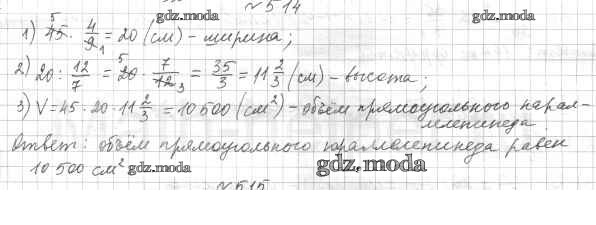 № 514
gdz.moda
1) 45 · 4/9 = 20 (см) – ширина;
5 1
gdz.moda
2) 20 : 12/7 = 20 · 7/12 = 35/3 = 11 2/3 (см) – высота;
5 3
3) V = 45 · 20 · 11 2/3 = 10 500 (см²) – объём прямоугольного парал-
лелепипеда.
Ответ: объём прямоугольного параллелепипеда равен
10 500 см² gdz.moda
gdz.moda
№ 515